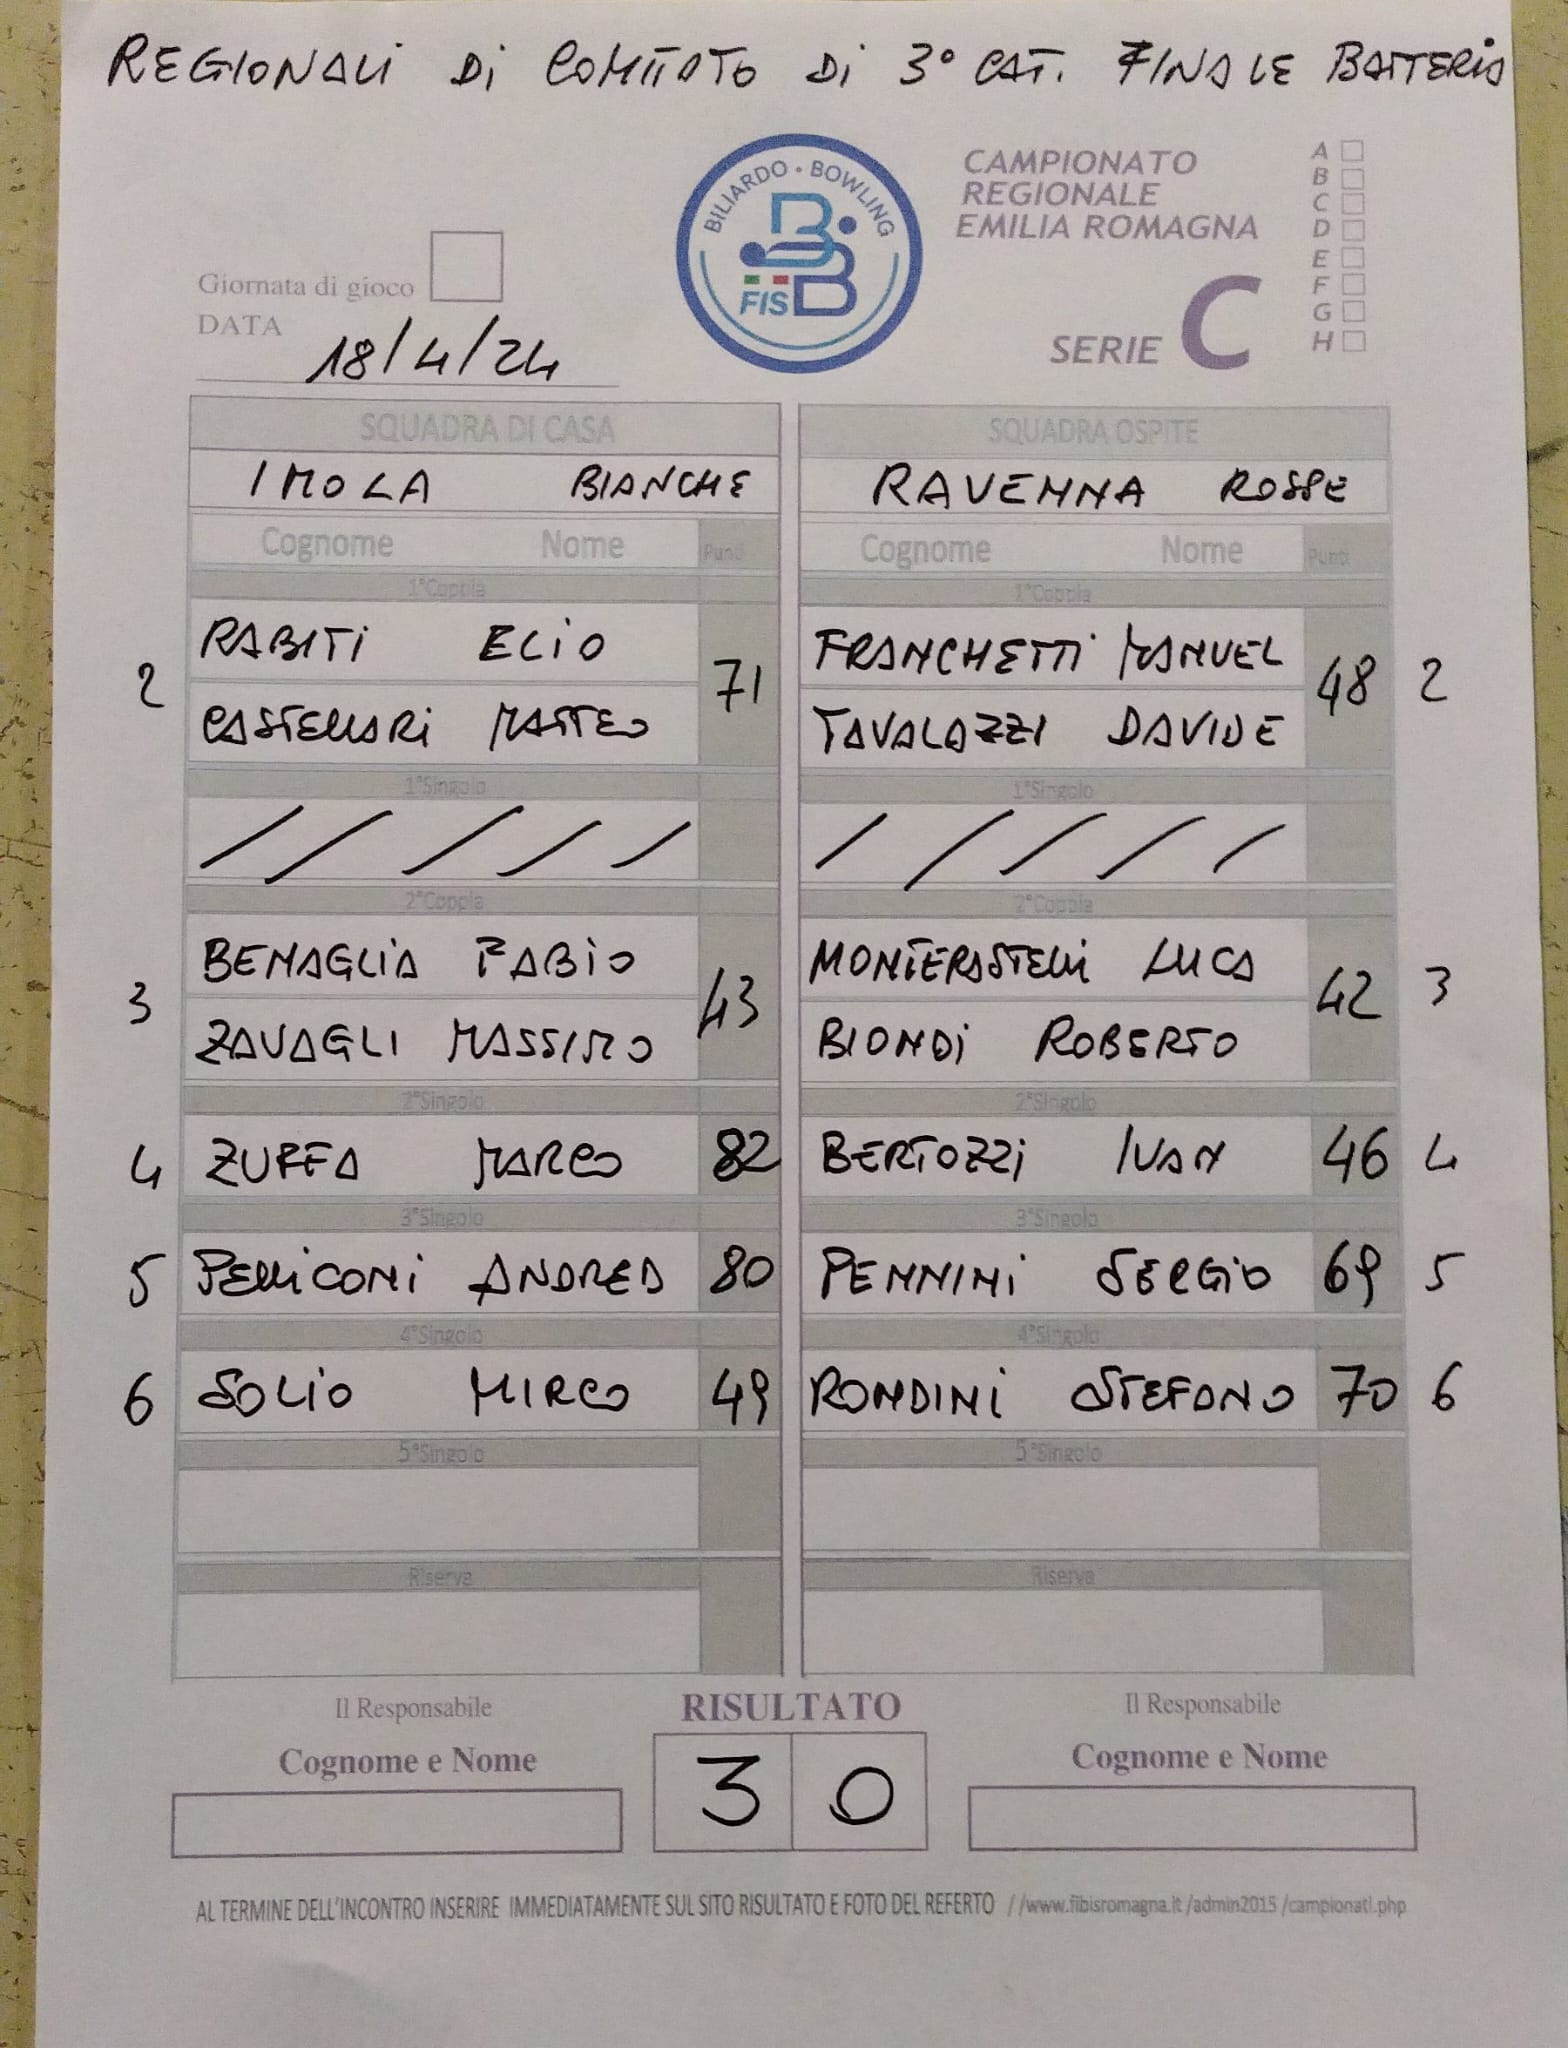 REGIONALI Di COMITATO Di 3° CAT. FINALE BATTERIA
BILIARDO • BOWLING
FISBB
CAMPIONATO
REGIONALE
EMILIA ROMAGNA
SERIE C
A
B
C
D
E
F
G
H
Giornata di gioco
DATA 18/4/24
SQUADRA DI CASA SQUADRA OSPITE
IMOLA BIANCHE RAVENNA ROSSE
Cognome Nome Punti Cognome Nome Punti
1°Coppia 1°Coppia
2 RABITi ELiO 71 FRANCHETTi MANUEL 48 2
CASTELLARi MATTEO TAVALAZZI DAVIDE
1°Singolo 1°Singolo
/ / / / / / / / / /
2°Coppia 2°Coppia
3 BENAGLiA FABiO 43 MONTERASTELLi LUCA 42 3
ZAVAGLI MASSIMO BIONDi ROBERTO
2°Singolo 2°Singolo
4 ZUFFA MARCO 82 BERTOZZi IVAN 46 4
3°Singolo 3°Singolo
5 PELLiCONi ANDREA 80 PENNINi SERGiO 69 5
4°Singolo 4°Singolo
6 SOLiO MIRCO 49 RONDINi STEFANO 70 6
5°Singolo 5°Singolo
Riserva Riserva
Il Responsabile RISULTATO Il Responsabile
Cognome e Nome 3 0 Cognome e Nome
AL TERMINE DELL'INCONTRO INSERIRE IMMEDIATAMENTE SUL SITO RISULTATO E FOTO DEL REFERTO //www.fibisromagna.it /admin2015 /campionati.php